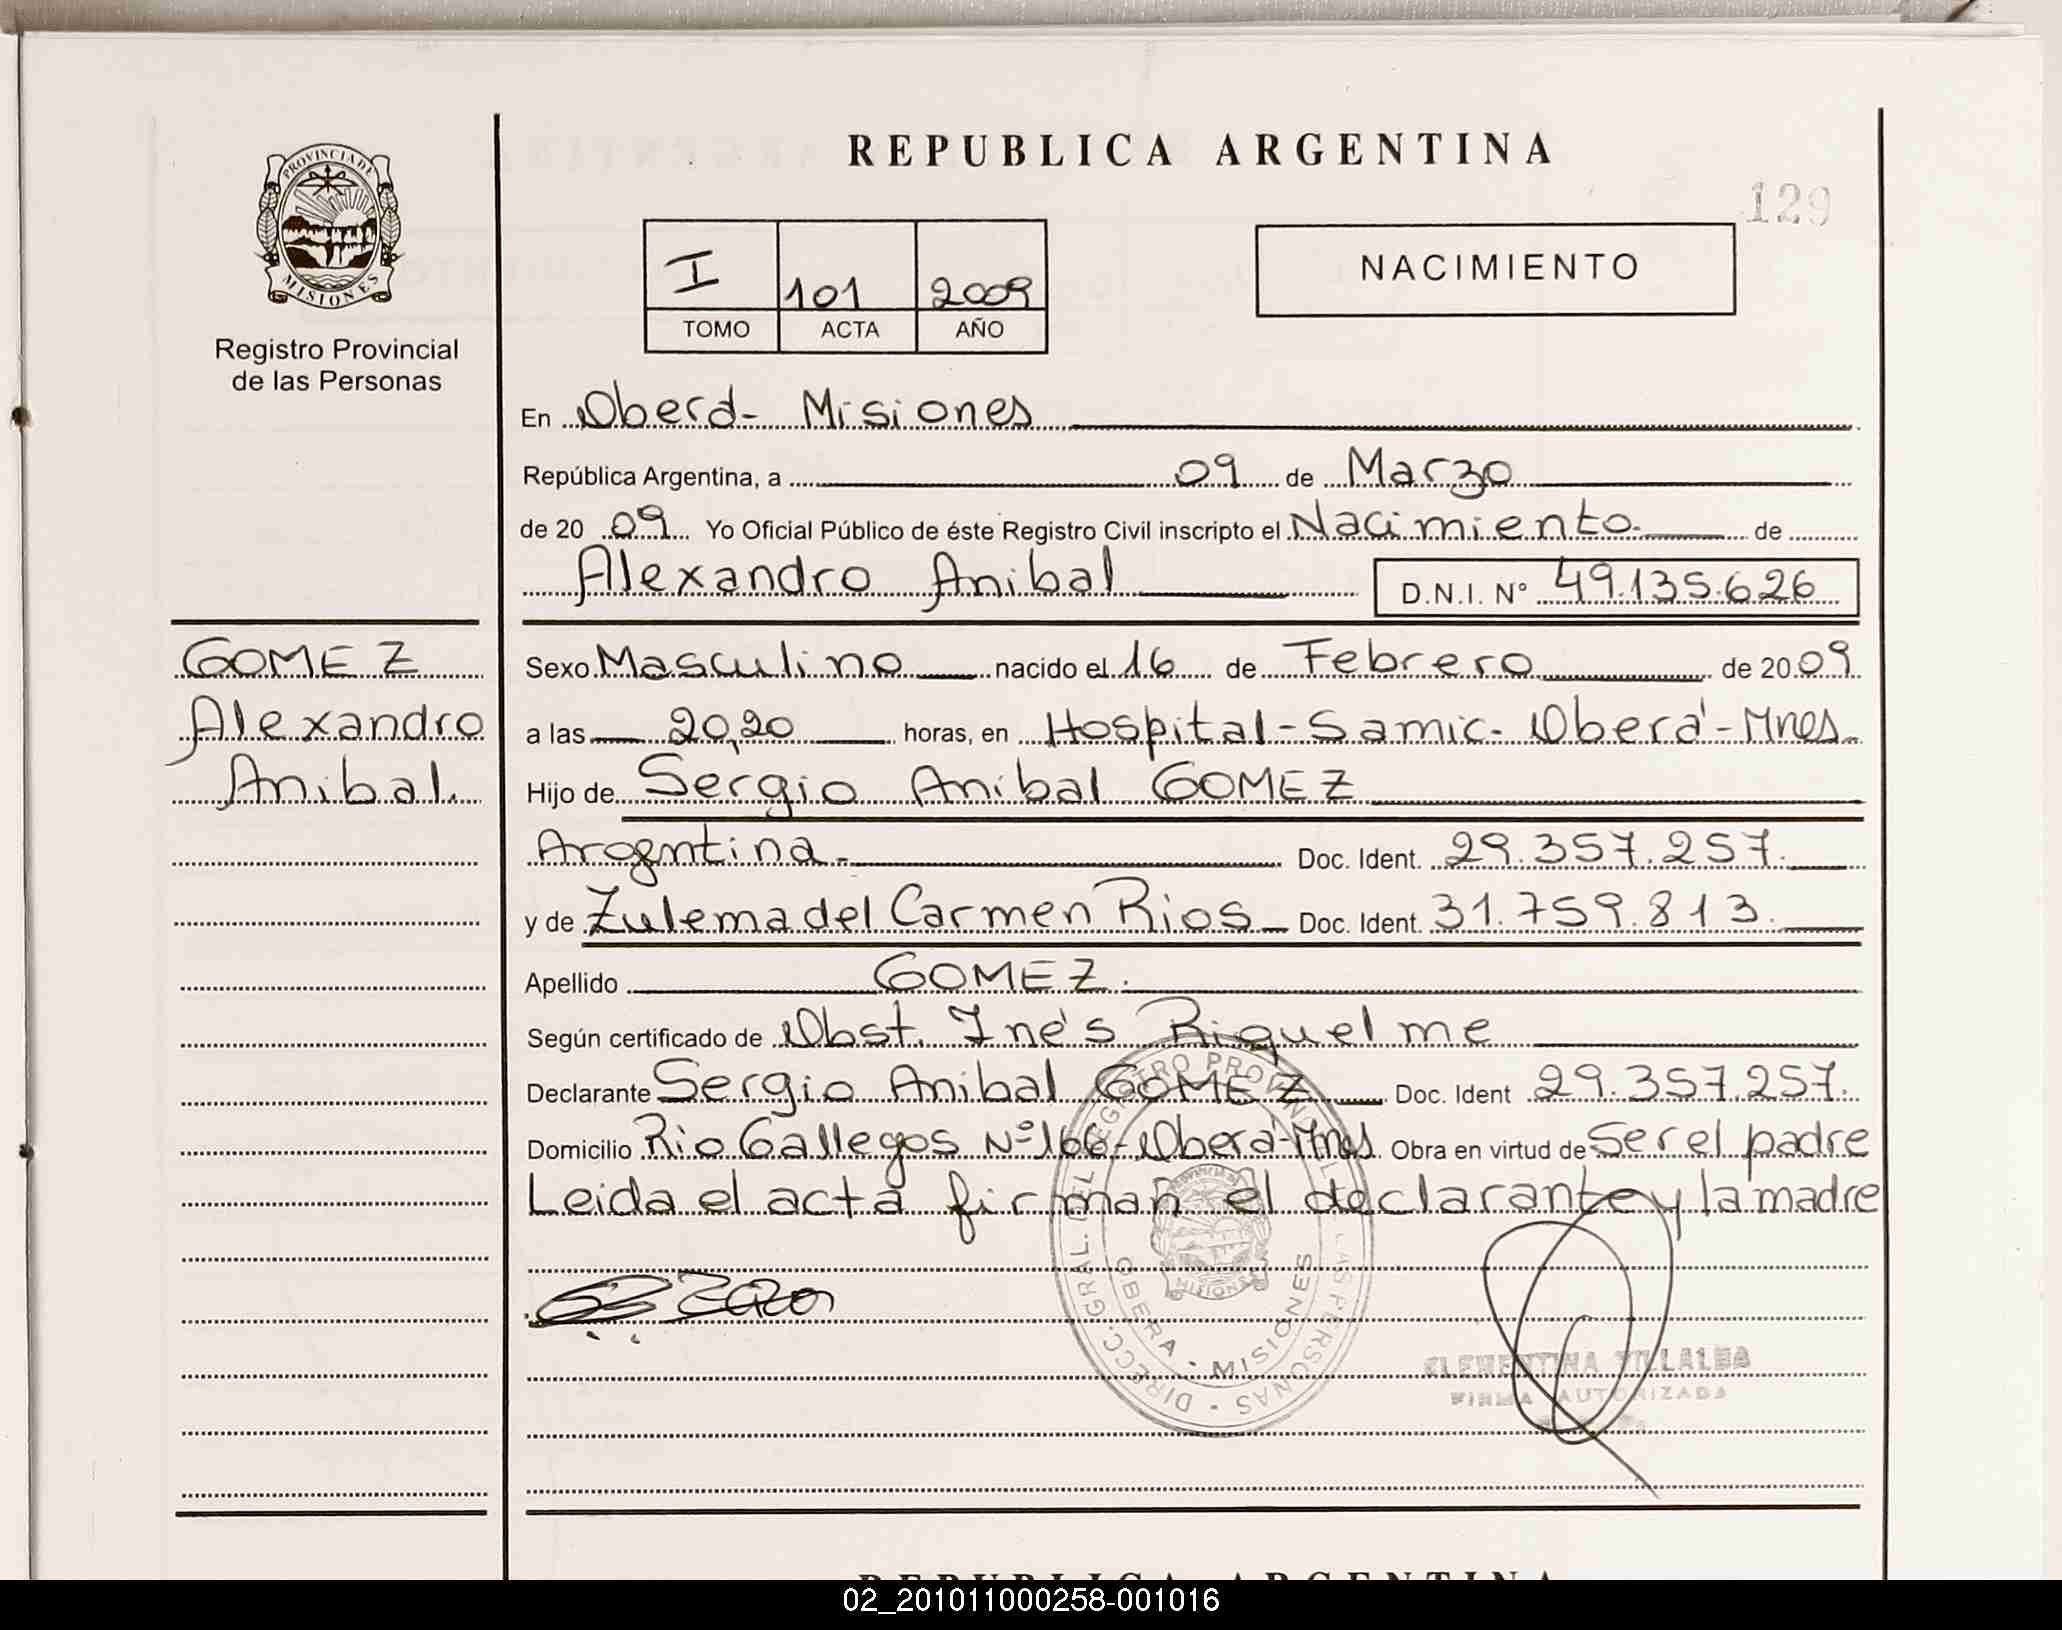 REPUBLICA ARGENTINA
129
PROVINCIA DE
MISIONES
Registro Provincial
de las Personas
I 101 2009
TOMO ACTA AÑO
NACIMIENTO
En Oberá- Misiones
República Argentina, a 09 de Marzo
de 20 09 Yo Oficial Público de éste Registro Civil inscripto el Nacimiento. de
Alexandro Anibal D.N.I. N° 49.135.626
GOMEZ
Alexandro
Anibal.
Sexo Masculino nacido el 16 de Febrero de 2009
a las 20,20 horas, en Hospital-Samic- Oberá-Mnes.
Hijo de Sergio Anibal GOMEZ
Argentina.- Doc. Ident. 29.357.257.
y de Zulema del Carmen Rios Doc. Ident. 31.759.813.
Apellido GOMEZ.
Según certificado de Obst. Inés Riquelme
Declarante Sergio Anibal GOMEZ Doc. Ident 29.357.257.
Domicilio Rio Gallegos N°166-Oberá-Mnes. Obra en virtud de Ser el padre
Leida el acta firman el declarante y la madre
DIRECC. GRAL. DEL REGISTRO PROVINCIAL DE LAS PERSONAS
OBERA - MISIONES
CLEMENTINA VILLALBA
FIRMA AUTORIZADA
REPUBLICA ARGENTINA
02_201011000258-001016